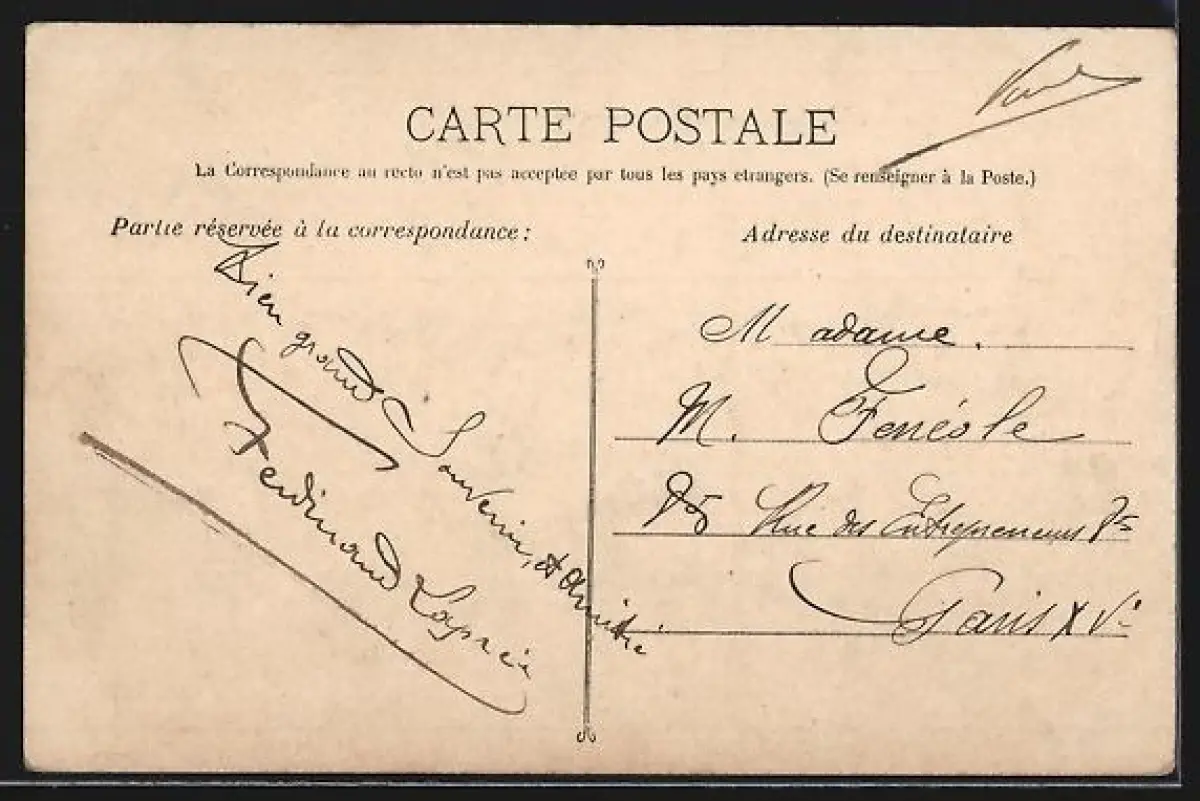 CARTE POSTALE
La Correspondance au recto n'est pas acceptée par tous les pays étrangers. (Se renseigner à la Poste.)
Partie réservée à la correspondance :
Adresse du destinataire
Bien grand Souvenir, et Amitié
Ferdinand
Madame.
M. Fenéole
Rue des Entrepreneurs
Paris XV